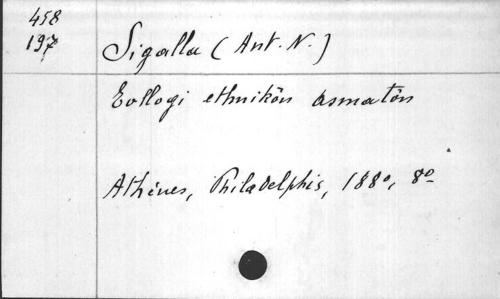 458
197
Sigalla (Ant. N.)
Evllogi ethnikōn asmatōn
Athènes, Philadelphis, 1880, 8º